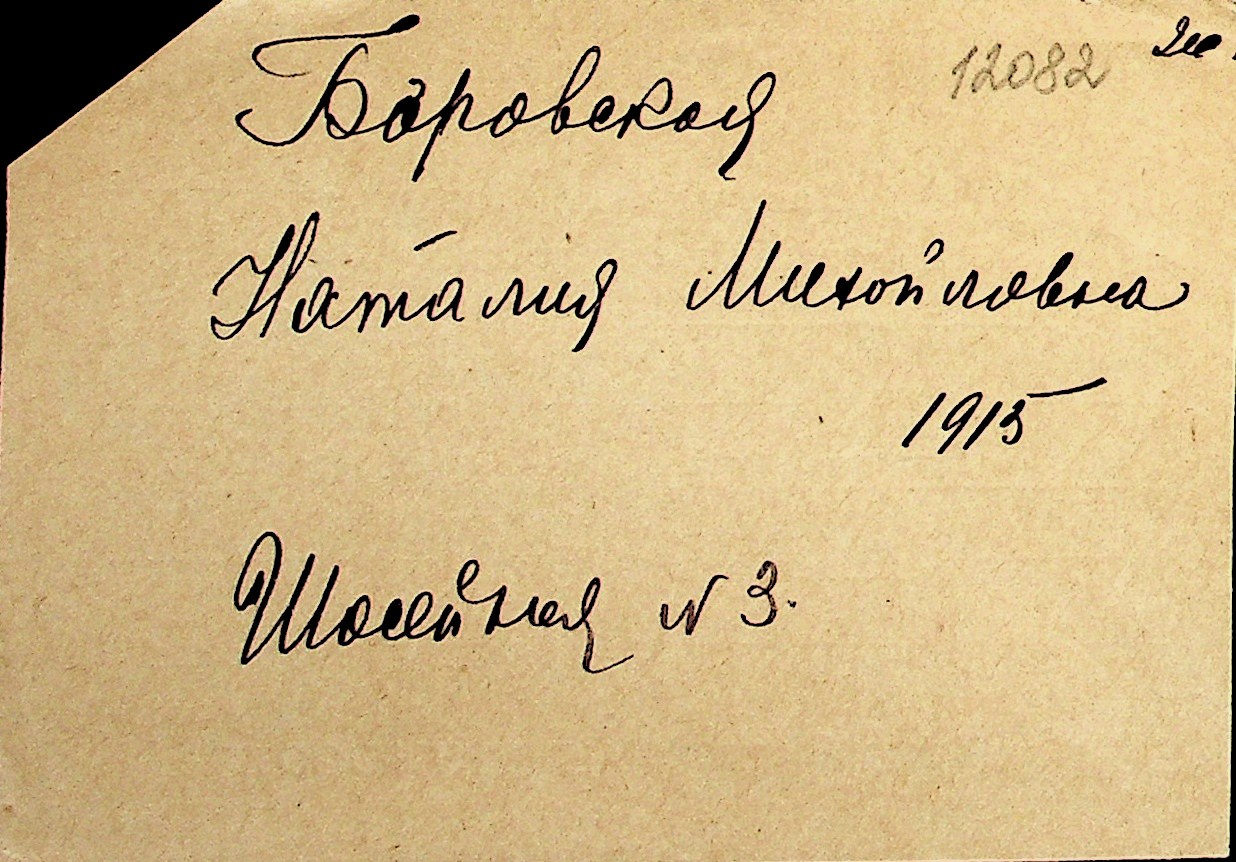 12082
Боровская
Наталия Михайловна
1915
Шосейная N 3.